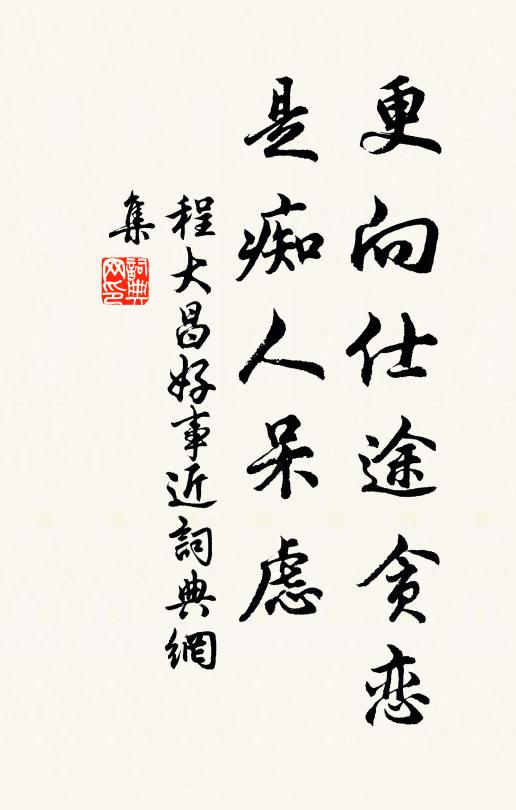 更向仕途贪恋
是痴人呆虑
程大昌好事近詞典網
集
詞典
网印